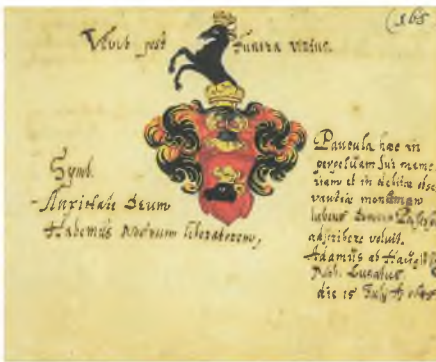 (168
Vivit post Funera virtus.
Symb.
Auxiliate Deum
Habemus Nostrum liberatorem,
Paucula hæc in
perpetuam sui memo
riam et in debitæ obse
lubens
adscribere voluit.
Adamus ab
Nob. Lusatus
die 15 July